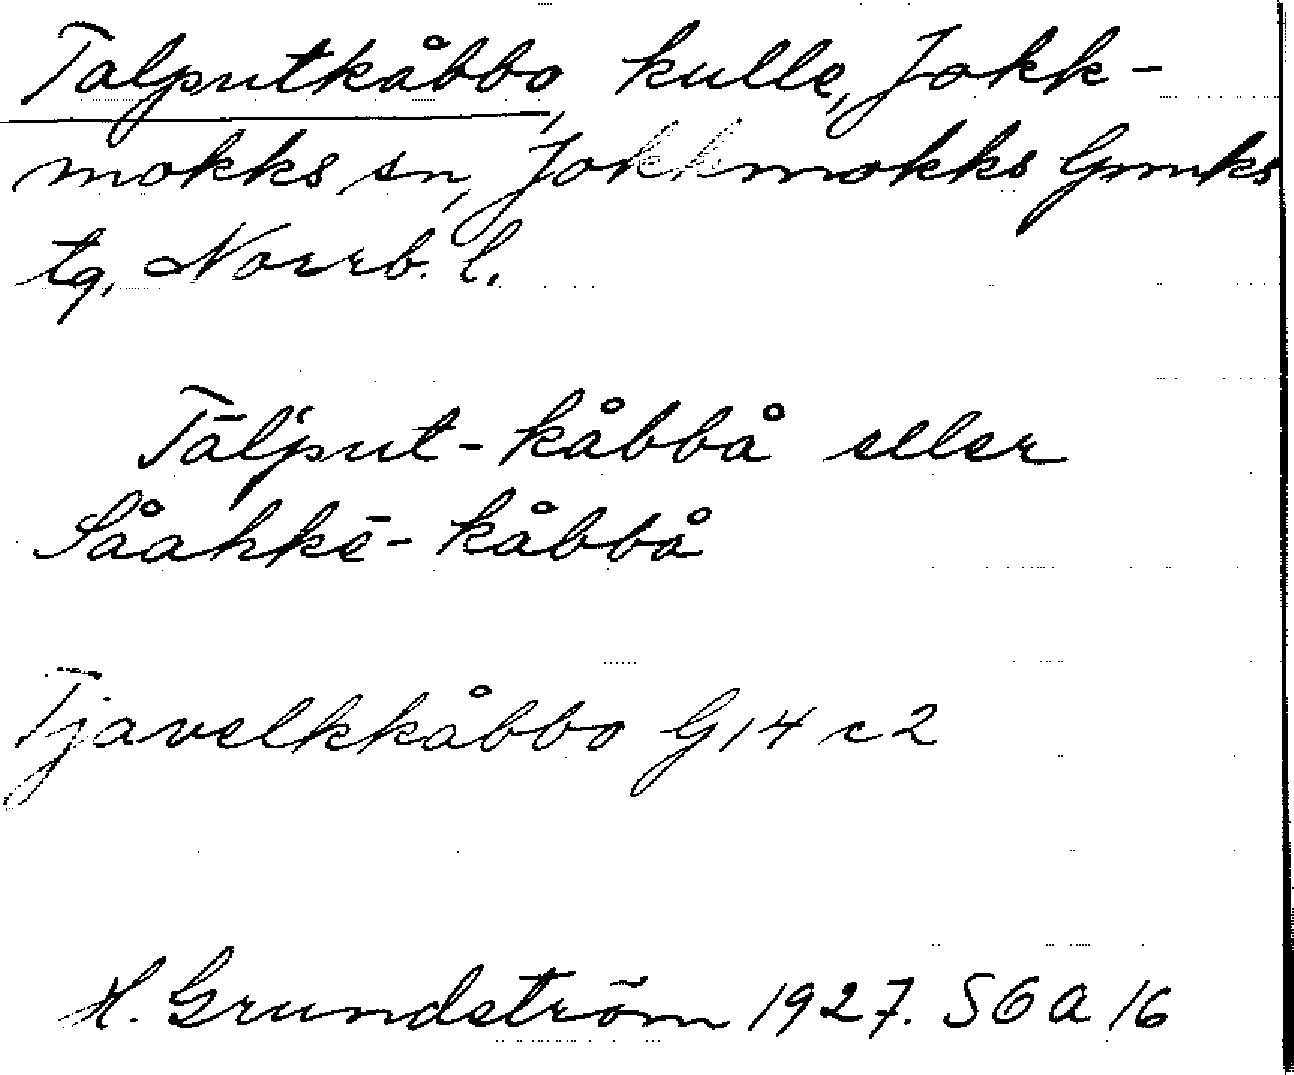 Talputkåbbo, kulle, Jokk-
mokks sn, Jokkmokks lpmks
tg, Norrb. l.
Tālput-kåbbå eller
Såahkē-kåbbå
Tjavelkkåbbo G14 c2
H. Grundström 1927. SOA 16